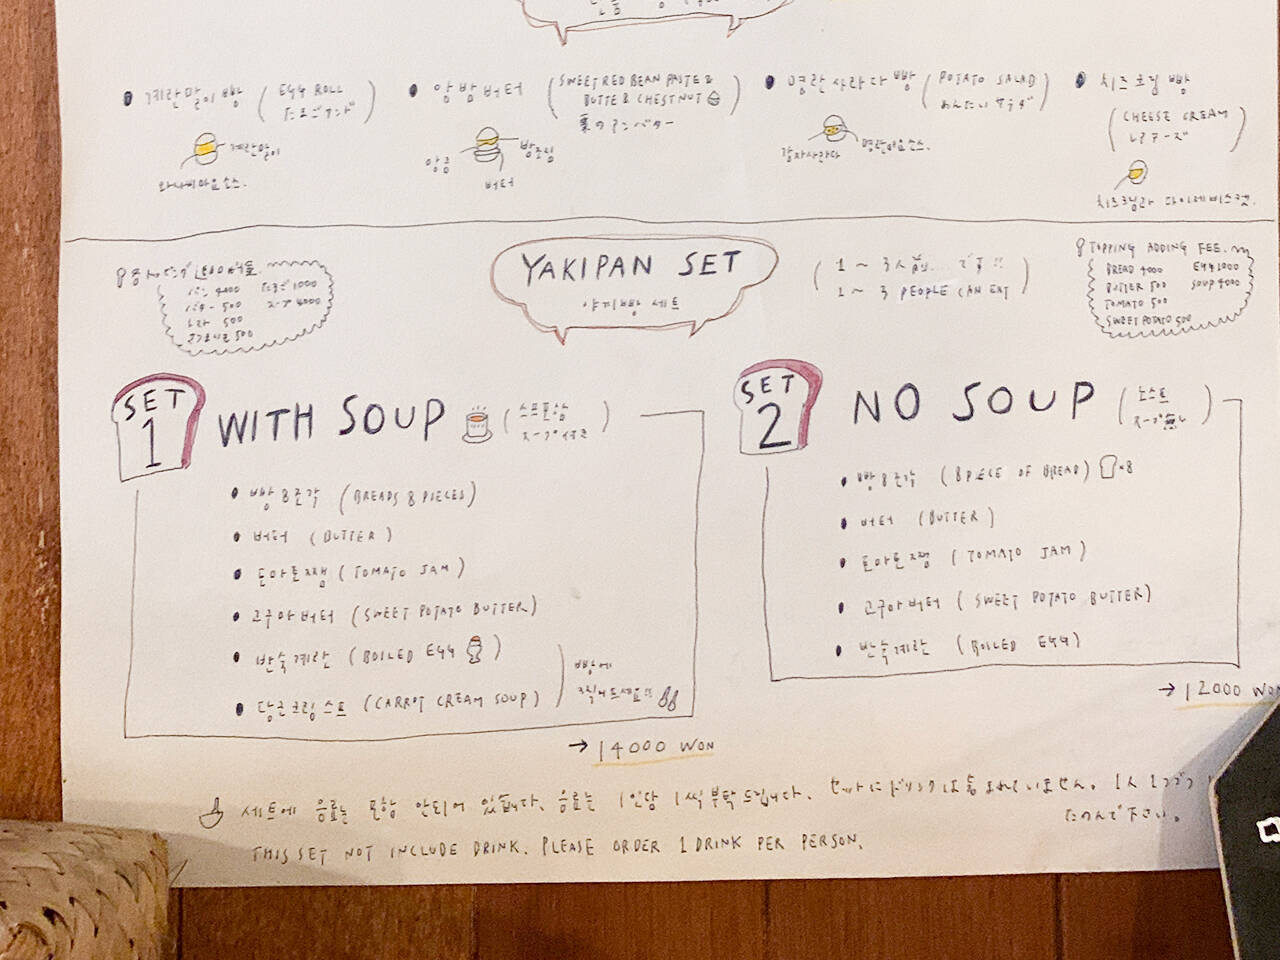 계란말이 빵 (EGG ROLL
たまごサンド)
계란말이
와사비마요소스.
앙 밤 버터 (SWEET RED BEAN PASTE &
BUTTER & CHESTNUT)
栗のアンバター
앙금
밤조림
버터
명란 사라다 빵 (POTATO SALAD
めんたいサラダ)
감자사라다
명란마요소스.
치즈크림 빵
(CHEESE CREAM
レアチーズ)
치즈크림과 다이제비스켓.
YAKIPAN SET
야끼빵 세트
(1 ~ 3人前... です!!
1 ~ 3 PEOPLE CAN EAT)
パン 4000 たまご 1000
バター 500 スープ 4000
トマト 500
고구마버터 500
TOPPING ADDING FEE.
BREAD 4000 EGG 1000
BUTTER 500 SOUP 4000
TOMATO 500
SWEET POTATO 500
SET 1
WITH SOUP (스프포함
スープ付き)
빵 8조각 (BREADS 8 PIECES)
버터 (BUTTER)
토마토쨈 (TOMATO JAM)
고구마버터 (SWEET POTATO BUTTER)
반숙계란 (BOILED EGG)
당근크림스프 (CARROT CREAM SOUP)
빵에
찍어드세요!!
→ 14000 WON
SET 2
NO SOUP (노스프
スープ無し)
빵 8조각 (8 PIECE OF BREAD) ×8
버터 (BUTTER)
토마토쨈 (TOMATO JAM)
고구마버터 (SWEET POTATO BUTTER)
반숙계란 (BOILED EGG)
→ 12000 WON
세트에 음료는 포함 안되어 있습니다. 음료는 1인당 1씩 부탁드립니다. セットにドリンクは含まれていません。1人1つづつ
たのんで下さい。
THIS SET NOT INCLUDE DRINK. PLEASE ORDER 1 DRINK PER PERSON.